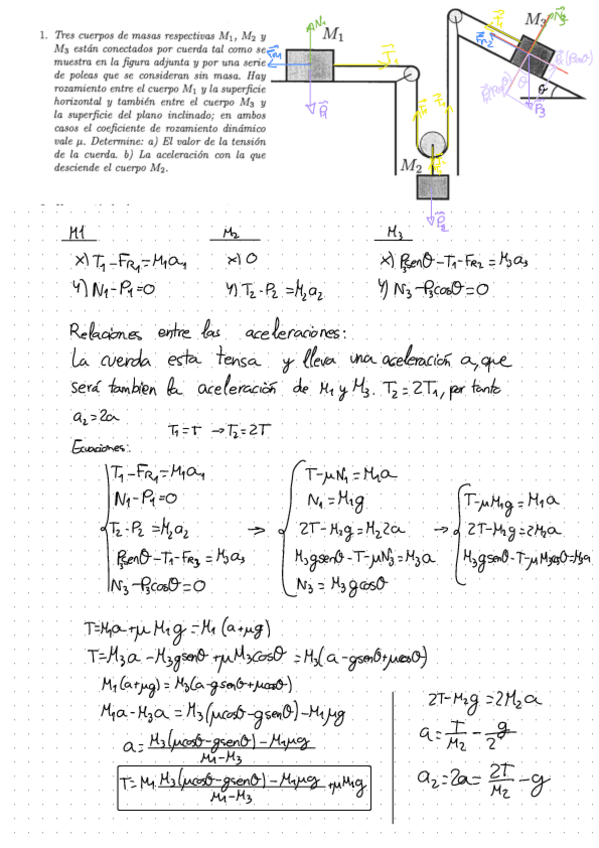 1. Tres cuerpos de masas respectivas M₁, M₂ y
M₃ están conectados por cuerda tal como se
muestra en la figura adjunta y por una serie
de poleas que se consideran sin masa. Hay
rozamiento entre el cuerpo M₁ y la superficie
horizontal y también entre el cuerpo M₃ y
la superficie del plano inclinado; en ambos
casos el coeficiente de rozamiento dinámico
vale μ. Determine: a) El valor de la tensión
de la cuerda. b) La aceleración con la que
desciende el cuerpo M₂.
N₁ M₁
P₁
M₂
P₂
M₃ N₃
P₃ θ
M1 M₂ M₃
x) T₁-FR₁=M₁a₁ x) 0 x) P₃senθ-T₁-FR₂=M₃a₃
y) N₁-P₁=0 y) T₂-P₂=M₂a₂ y) N₃-P₃cosθ=0
Relaciones entre las aceleraciones:
La cuerda esta tensa y lleva una aceleración a, que
será tambien la aceleración de M₁ y M₃. T₂=2T₁, por tanto
a₂=2a
T₁=T → T₂=2T
Ecuaciones:
T₁-FR₁=M₁a₁
N₁-P₁=0
T₂-P₂=M₂a₂
P₃senθ-T₁-FR₃=M₃a₃
N₃-P₃cosθ=0
→
T-μN₁=M₁a
N₁=M₁g
2T-M₂g=M₂2a
M₃gsenθ-T-μN₃=M₃a
N₃=M₃gcosθ
→
T-μM₁g=M₁a
2T-M₂g=2M₂a
M₃gsenθ-T-μM₃cosθ=M₃a
T=M₁a+μM₁g=M₁(a+μg)
T=M₃a-M₃gsenθ+μM₃cosθ=M₃(a-gsenθ+μcosθ)
M₁(a+μg)=M₃(a-gsenθ+μcosθ)
M₁a-M₃a=M₃(μcosθ-gsenθ)-M₁μg
a=M₃(μcosθ-gsenθ)-M₁μg/M₁-M₃
T=M₁·M₃(μcosθ-gsenθ)-M₁μg/M₁-M₃+μM₁g
2T-M₂g=2M₂a
a=T/M₂-g/2
a₂=2a=2T/M₂-g